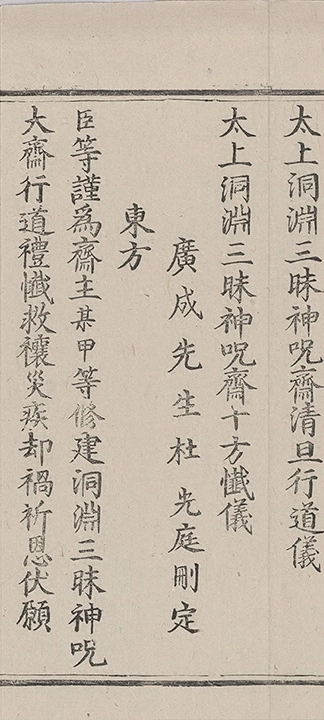 太上洞淵三昧神呪齋清旦行道儀
太上洞淵三昧神呪齋十方懺儀
廣成先生杜光庭刪定
東方
臣等謹爲齋主某甲等修建洞淵三昧神呪
大齋行道禮懺救禳災疾却禍祈恩伏願